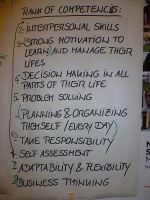 RANK OF COMPETENCIES:
INTERPERSONAL SKILLS
(STRONG MOTIVATION TO
LEARN) AND MANAGE THEIR
LIFES
DECISION MAKING IN ALL
PARTS OF THEIR LIFE
PROBLEM SOLVING
PLANNING & ORGANIZING
THEMSELF (EVERY DAY)
TAKE RESPONSIBILITY
SELF ASSESSMENT
ADAPTABILITY & FLEXIBILITY
BUSINESS THINKING